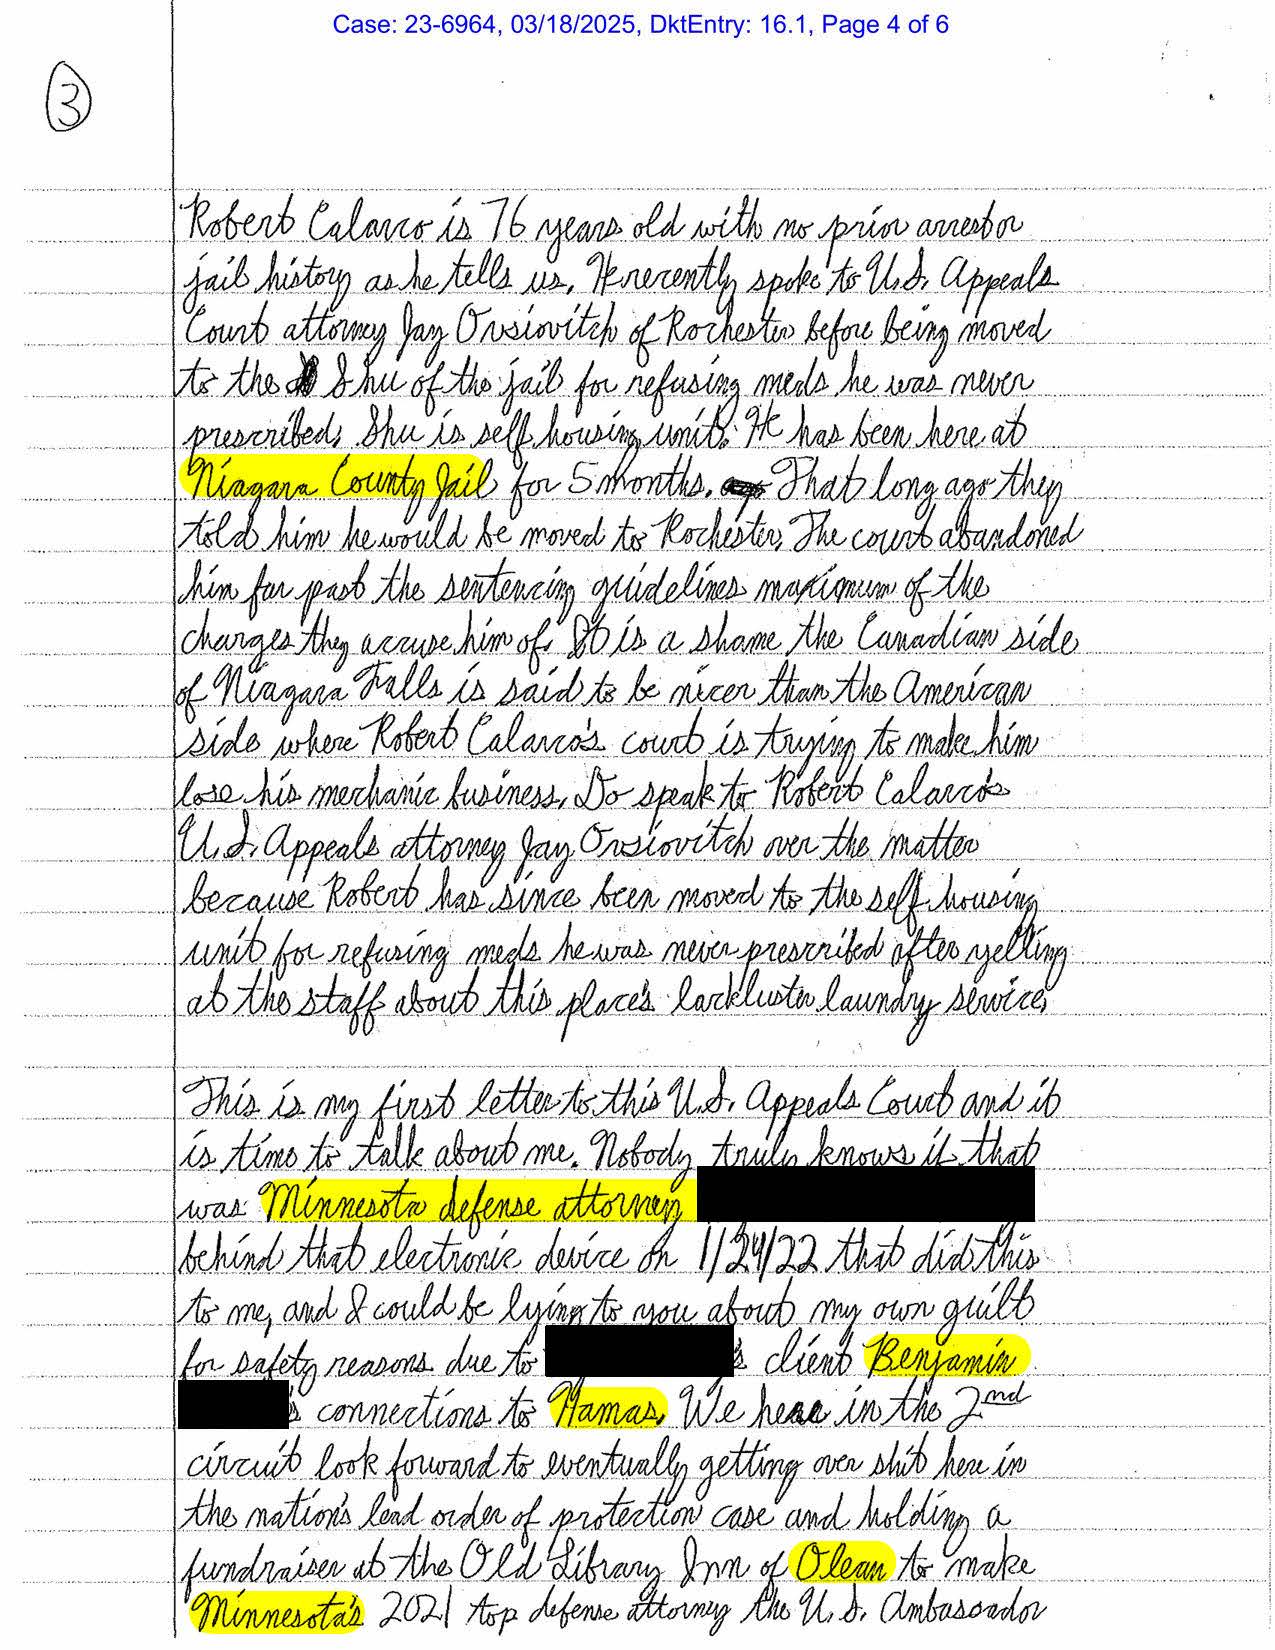 Case: 23-6964, 03/18/2025, DktEntry: 16.1, Page 4 of 6
3
Robert Calarco is 76 years old with no prior arrest or
jail history as he tells us. He recently spoke to U.S. Appeals
Court attorney Jay Ovsiovitch of Rochester before being moved
to the Shu of the jail for refusing meds he was never
prescribed. Shu is self housing unit. He has been here at
Niagara County Jail for 5 months. That long ago they
told him he would be moved to Rochester. The court abandoned
him far past the sentencing guidelines maximum of the
charges they accuse him of. It is a shame the Canadian side
of Niagara Falls is said to be nicer than the American
side where Robert Calarco's court is trying to make him
lose his mechanic business. Do speak to Robert Calarco's
U.S. Appeals attorney Jay Ovsiovitch over the matter
because Robert has since been moved to the self housing
unit for refusing meds he was never prescribed after yelling
at the staff about this place's lackluster laundry service.
This is my first letter to this U.S. Appeals Court and it
is time to talk about me. Nobody truly knows if that
was Minnesota defense attorney
behind that electronic device on 1/24/22 that did this
to me, and I could be lying to you about my own guilt
for safety reasons due to 's client Benjamin
's connections to Hamas. We here in the 2nd
circuit look forward to eventually getting over shit here in
the nation's lead order of protection case and holding a
fundraiser at the Old Library Inn of Olean to make
Minnesota's 2021 top defense attorney the U.S. Ambassador